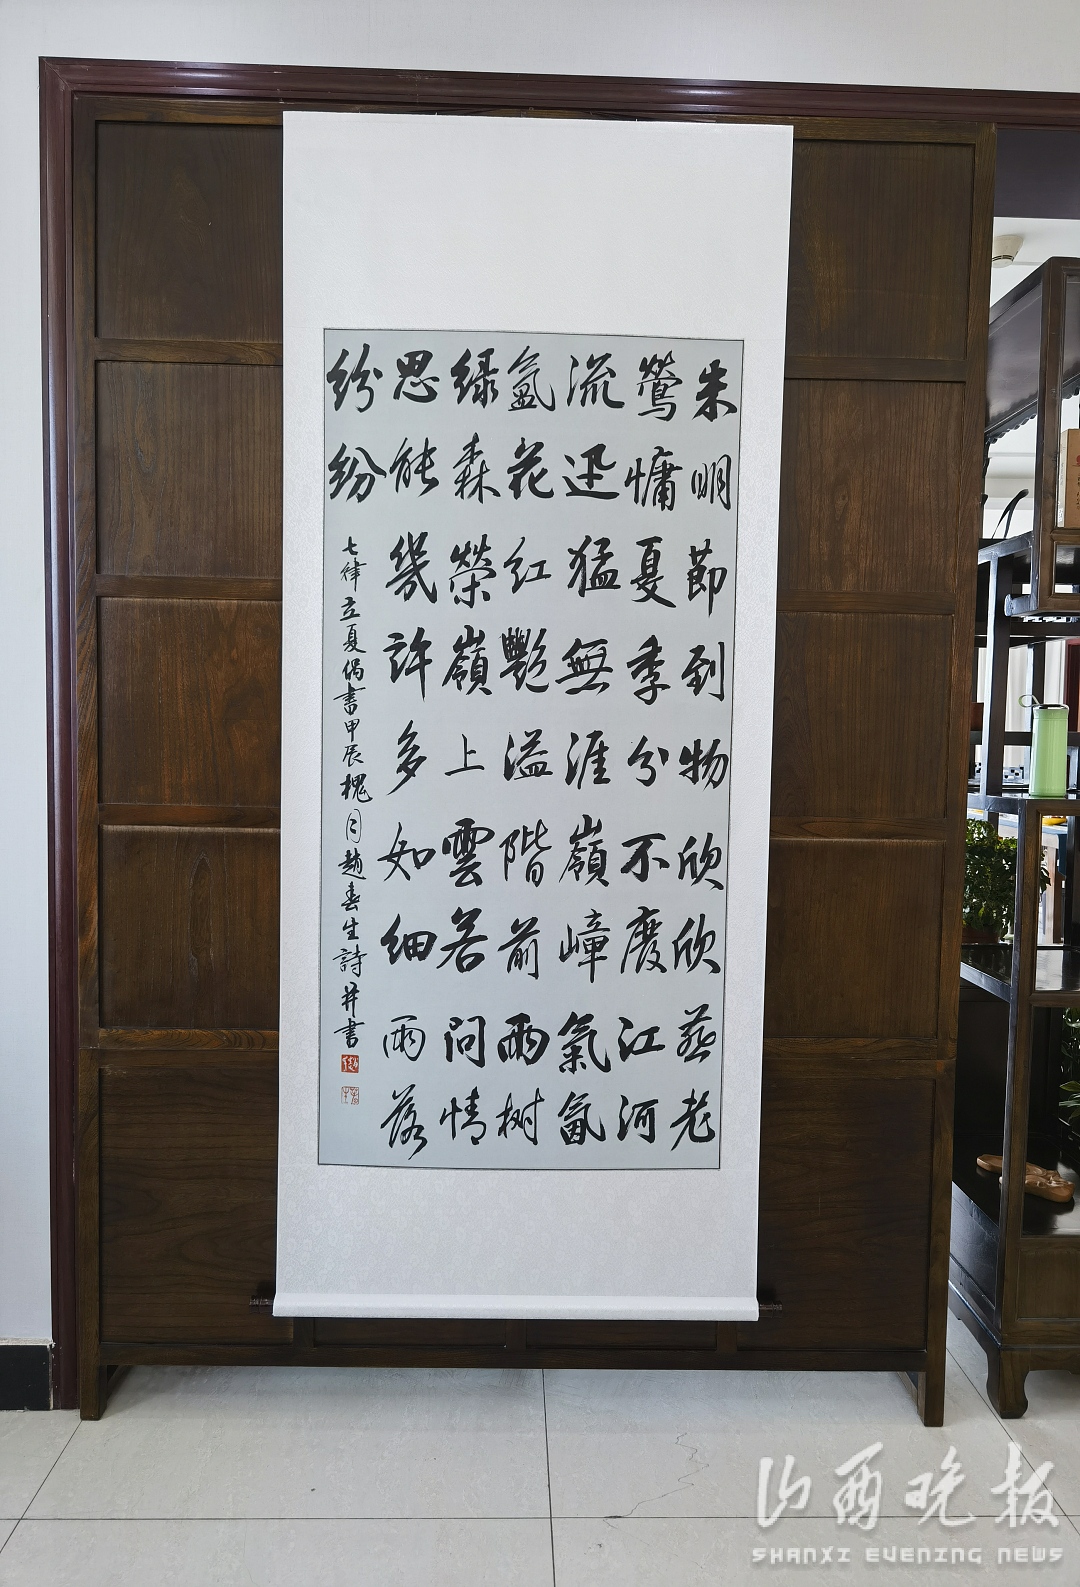 朱明節到物欣欣燕老
鶯慵夏季分不废江河
流迅猛無涯嶺嶂氣氤
氲花红艷溢階前雨树
绿森榮嶺上雲若问情
思能幾許多如细雨落
纷纷
七律立夏偶書甲辰槐月趙春生詩并書
山西晚报
SHANXI EVENING NEWS